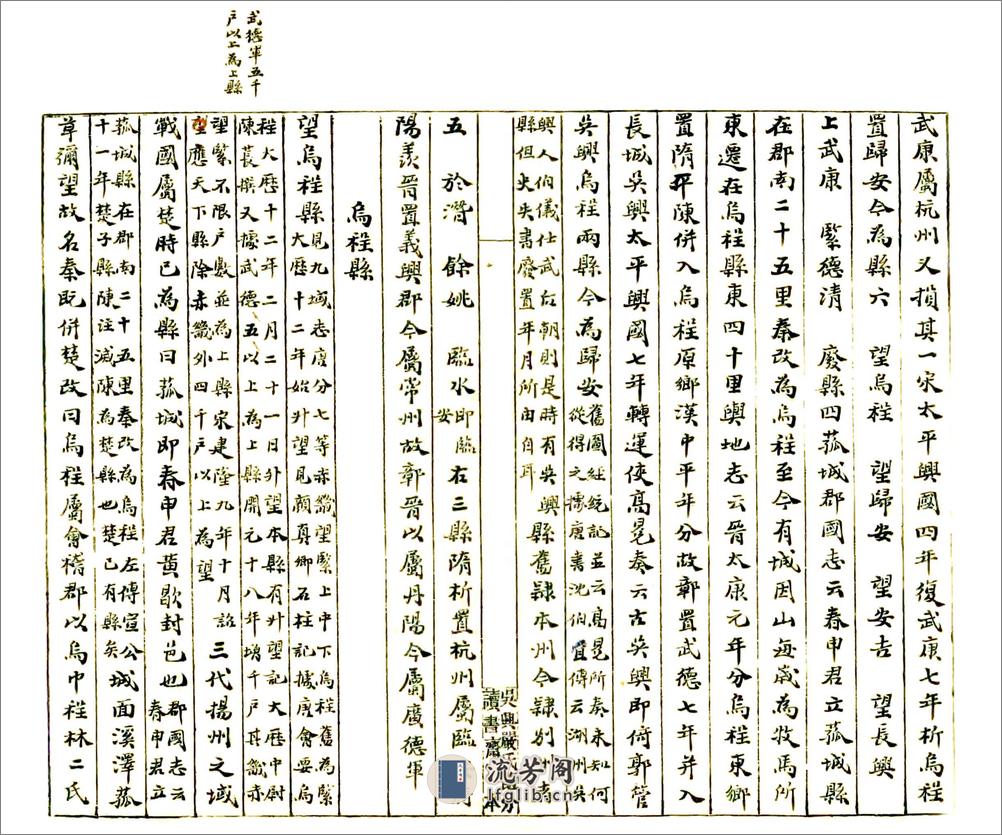 武康屬杭州又損其一宋太平興國四年復武庚七年析烏程
置歸安今為縣六 望烏程 望歸安 望安吉 望長興
上武康 緊德清 廢縣四菰城郡國志云春申君立菰城縣
在郡南二十五里秦改為烏程至今有城因山每歲為牧馬所
東遷在烏程縣東四十里輿地志云晉太康元年分烏程東鄉
置隋平陳併入烏程原鄉漢中平年分故鄣置武德七年并入
長城吳興太平興國七年轉運使高晃奏云古吳興即倚郭管
吳興烏程兩縣今為歸安
舊圖經統記並云高晃所奏未知何
從得之據唐書沈伯儀傳云湖州吳
興人伯儀仕武后朝則是時有吳興
縣但史失書廢置年月所由自耳
縣舊隸本州今隸別州者
吳興嚴氏
讀書齋本
五 於潛 餘姚 臨水
即臨
安
右三縣隋析置杭州屬臨
陽羨晉置義興郡今屬常州故鄣晉以屬丹陽今屬廣德軍
烏程縣
望烏程縣
見九域志唐分七等赤畿望緊上中下烏程舊為緊
大歷十二年始升望見顏真卿石柱記據唐會要烏
程大歷十二年二月二十一日升望本縣有升望記大歷中尉
陳萇撰又據武德五以上為上縣開元十八年增千戶其畿赤
武德軍五千
戶以上為上縣
望緊不限戶數並為上縣宋建隆九年十月詔
望應天下縣除赤畿外四千戶以上為望
三代揚州之域
戰國屬楚時已為縣曰菰城即春申君黃歇封邑也
郡國志云
春申君立
菰城縣在郡南二十五里秦改為烏程左傳宣公
十一年楚子縣陳注滅陳為楚縣也楚已有縣矣
城面溪澤菰
草彌望故名秦既併楚改曰烏程屬會稽郡以烏巾程林二氏
流芳阁
lfglib.com